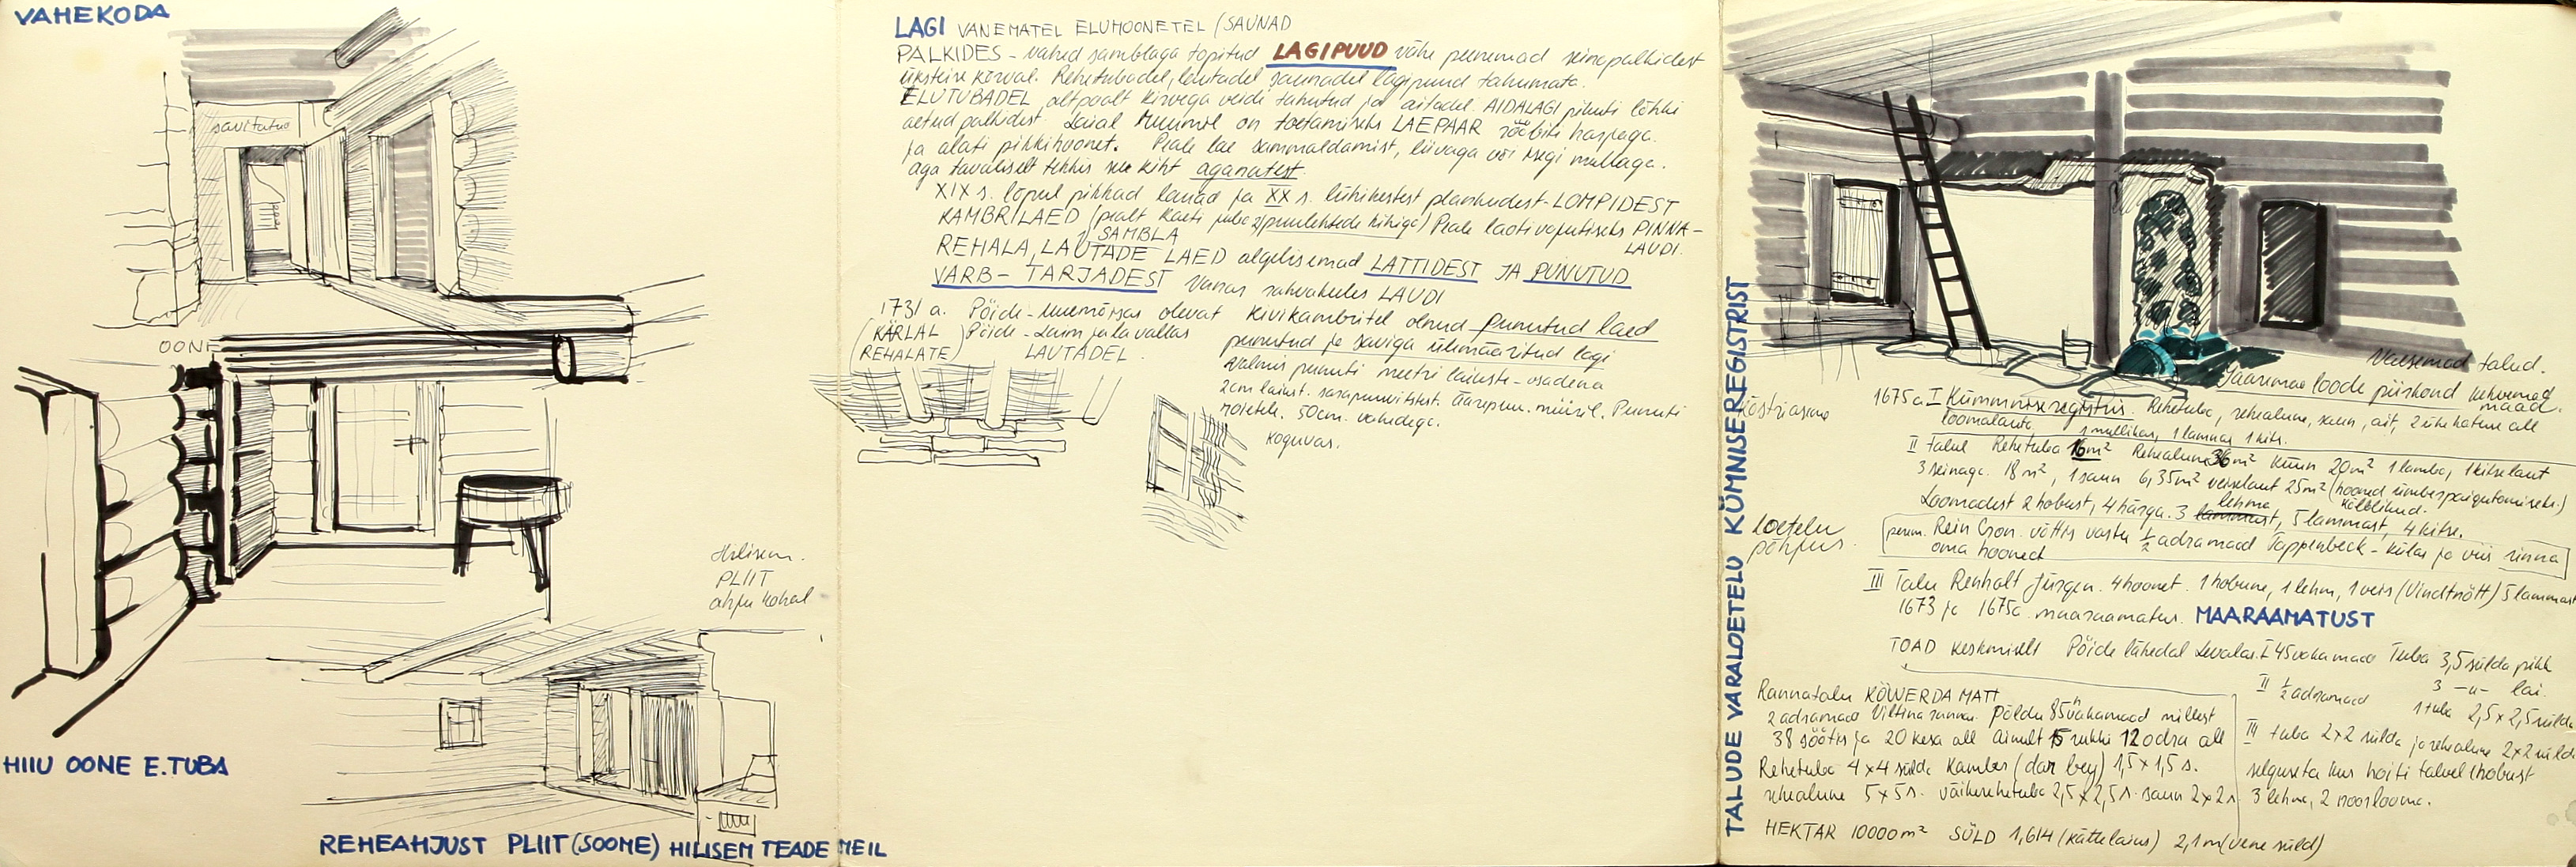 VAHEKODA
savitatud
OONE
Hilisem.
PLIIT
ahju kohal
HIIU OONE E.TUBA
REHEAHJUST PLIIT (SOOME) HILISEM TEADE MEIL
LAGI VANEMATEL ELUHOONETEL (SAUNAD
PALKIDES - vahed samblaga topitud LAGIPUUD vähe peenemad seinapalkidest
üksteise kõrval. Rehetubadel, lautadel saunadel lagipuud tahumata.
ELUTUBADEL altpoolt kirvega veidi tahutud ja aitadel. AIDALAGI pikuti lõhki
aetud palkidest. Laial ruumil on toetamiseks LAEPAAR rööbiti harjaga.
ja alati pikkihoonet. Peale lae sammaldamist, liivaga või isegi mullaga.
aga tavaliselt tehtis see kiht aganatest.
XIX s. lõpul pikkad lauad ja XX s. lühikestest plankudest - LOMPIDEST
KAMBRILAED (pealt kaeti juba puulehtede kihiga) Peale laoti vajutiseks PINNA-
SAMBLA LAUDI.
REHALA, LAUTADE LAED algelisemad LATTIDEST JA PUNUTUD
VARB - TARJADEST vanas rahvakeeles LAUDI
1731 a. Pöide - Uuemõisas olevat kivikambritel olnud punutud laed
(KÄRLAL Pöide - Laimjala vallas punutud ja saviga ülemääritud lagi
REHALATE) LAUTADEL.
Valmis punuti meetri laiuste - osadena
2cm laiust. sarapuuvitstest. Äärepuu. müüril. Punuti
roietele. 50cm. vahedega.
Koguvas.
TALUDE VARALOETELU KÜMNISEREGISTRIST
Vaesemad talud.
Saaremaa loode piirkond kehvemad
maad.
Köstriaseme
1675a I Kümniseregistris. Rehetuba, rehealune, saun, ait, 2 ühe katuse all
loomalauta. 1 mullikas, 1 lammas 1 kits.
II talul Rehetuba 16m² Rehealune 36m² Küün 20m² 1 lamba, 1 kitselaut
3 seinaga. 18m², 1 saun 6,35m² veiselaut 25m² (hooned ümberpaigutamiseks.)
kõlblikud.
Loomadest 2 hobust, 4 härga. 3 lehma, 5 lammast, 4 kitse.
Loetelu
põhjus.
perem. Rein Gron. võttis vastu 1/2 adramaad Tappenbeck - külas ja viis sinna
oma hooned
III Talu Renholt Jürgen. 4 hoonet. 1 hobune, 1 lehm, 1 veis (Vindtnött) 5 lammast
1673 ja 1675a. maaraamatus. MAARAAMATUST
TOAD keskmiselt Pöide lähedal Levalas. I 45 vakamaad Tuba 3,5 sülda pikk
3 -"- lai.
II 1/2 adramaad
1 tuba 2,5 x 2,5 sülda
III tuba 2x2 sülda ja rehealune 2x2 sülda
selguseta kus hoiti talvel 1 hobust
3 lehma, 2 noorlooma.
Rannatalu KÖWERDA MATT
2 adramaad Viltina rannas. Põldu 85 vakamaad millest
38 söötis ja 20 kesa all Ainult 15 rukki 12 odra all
Rehetuba 4x4 sülda Kamber (dar bey) 1,5 x 1,5 s.
rehealune 5x5s. väikerehetuba 2,5 x 2,5s. saun 2x2s
HEKTAR 10000m² SÜLD 1,614 (kättelaius) 2,1m (vene süld)